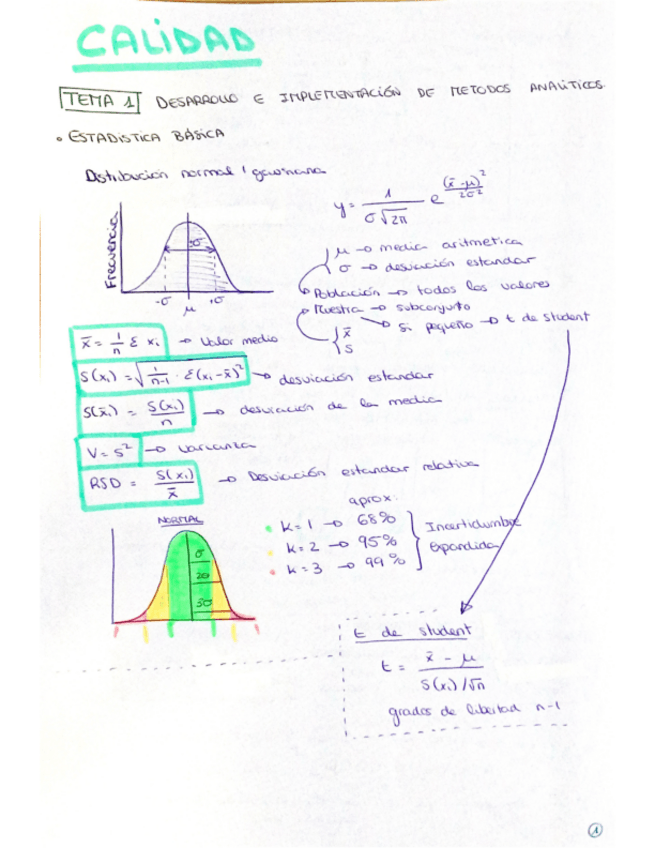 CALIDAD
TEMA 1 DESARROLLO E IMPLEMENTACIÓN DE METODOS ANALÍTICOS.
• ESTADISTICA BÁSICA
Distribución normal / gaussiana
y = 1 / σ√2π e (x̄-μ)² / 2σ²
Frecuencia
-σ μ +σ
μ → media aritmetica
σ → desviación estandar
Población → todos los valores
Muestra → subconjunto
x̄
s
Si pequeño → t de student
x̄ = 1/n Σ xᵢ → Valor medio
S(xᵢ) = √ 1/n-1 · Σ(xᵢ-x̄)² → desviación estandar
S(x̄ᵢ) = S(xᵢ)/n → desviación de la media
V = s² → varianza
RSD = S(xᵢ)/x̄ → Desviación estandar relativa
NORMAL
σ
2σ
3σ
aprox.
• K=1 → 68%
• K=2 → 95%
• K=3 → 99%
Incertidumbre
expandida
t de student
t = x̄ - μ / S(xᵢ)/√n
grados de libertad n-1
1